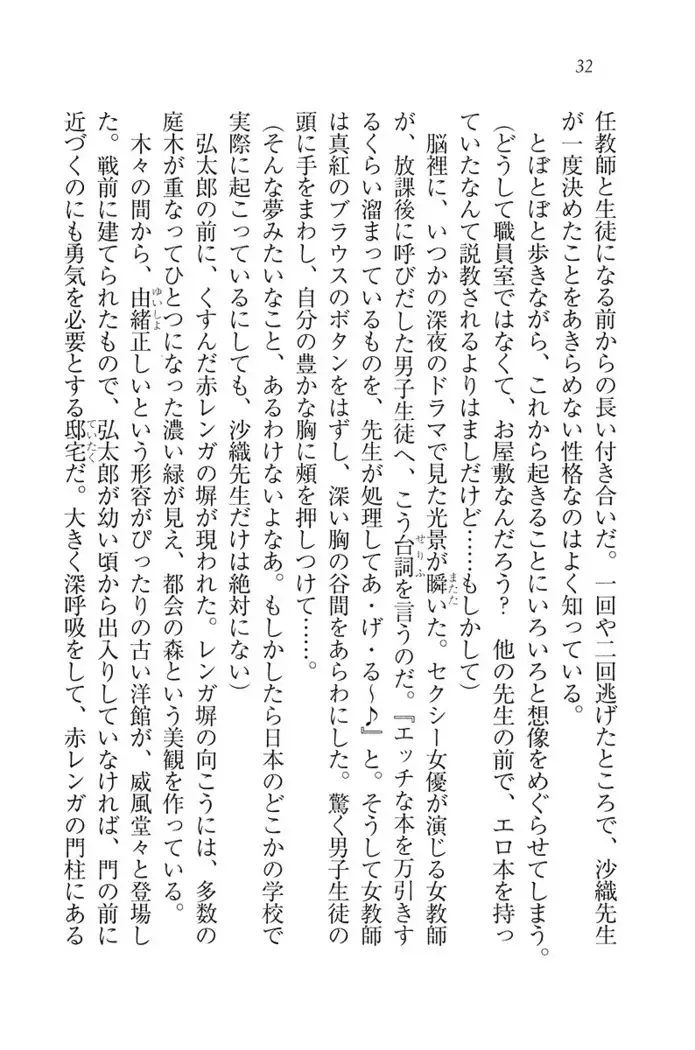 32
任教師と生徒になる前からの長い付き合いだ。一回や二回逃げたところで、沙織先生
が一度決めたことをあきらめない性格なのはよく知っている。
とぼとぼと歩きながら、これから起きることにいろいろと想像をめぐらせてしまう。
(どうして職員室ではなくて、お屋敷なんだろう? 他の先生の前で、エロ本を持っ
ていたなんて説教されるよりはましだけど……もしかして)
脳裡に、いつかの深夜のドラマで見た光景が瞬いた。セクシー女優が演じる女教師
が、放課後に呼びだした男子生徒へ、こう台詞を言うのだ。『エッチな本を万引きす
るくらい溜まっているものを、先生が処理してあ・げ・る〜♪』と。そうして女教師
は真紅のブラウスのボタンをはずし、深い胸の谷間をあらわにした。驚く男子生徒の
頭に手をまわし、自分の豊かな胸に頬を押しつけて……。
(そんな夢みたいなこと、あるわけないよなあ。もしかしたら日本のどこかの学校で
実際に起こっているにしても、沙織先生だけは絶対にない)
弘太郎の前に、くすんだ赤レンガの塀が現われた。レンガ塀の向こうには、多数の
庭木が重なってひとつになった濃い緑が見え、都会の森という美観を作っている。
木々の間から、由緒正しいという形容がぴったりの古い洋館が、威風堂々と登場し
た。戦前に建てられたもので、弘太郎が幼い頃から出入りしていなければ、門の前に
近づくのにも勇気を必要とする邸宅だ。大きく深呼吸をして、赤レンガの門柱にある